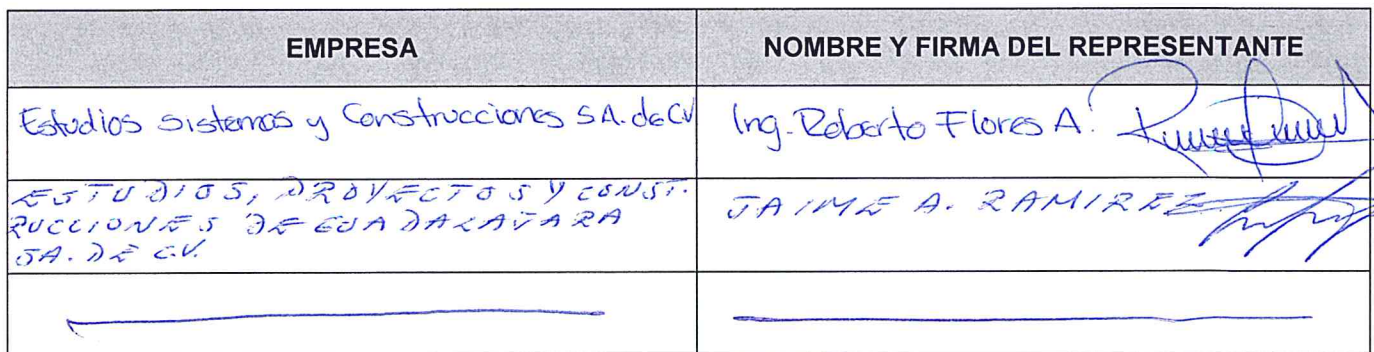 EMPRESA
NOMBRE Y FIRMA DEL REPRESENTANTE
Estudios sistemas y Construcciones S.A. de C.V
Ing. Roberto Flores A.
ESTUDIOS, PROYECTOS Y CONST.
RUCCIONES DE GUADALAJARA
SA. DE C.V.
JAIME A. RAMIREZ